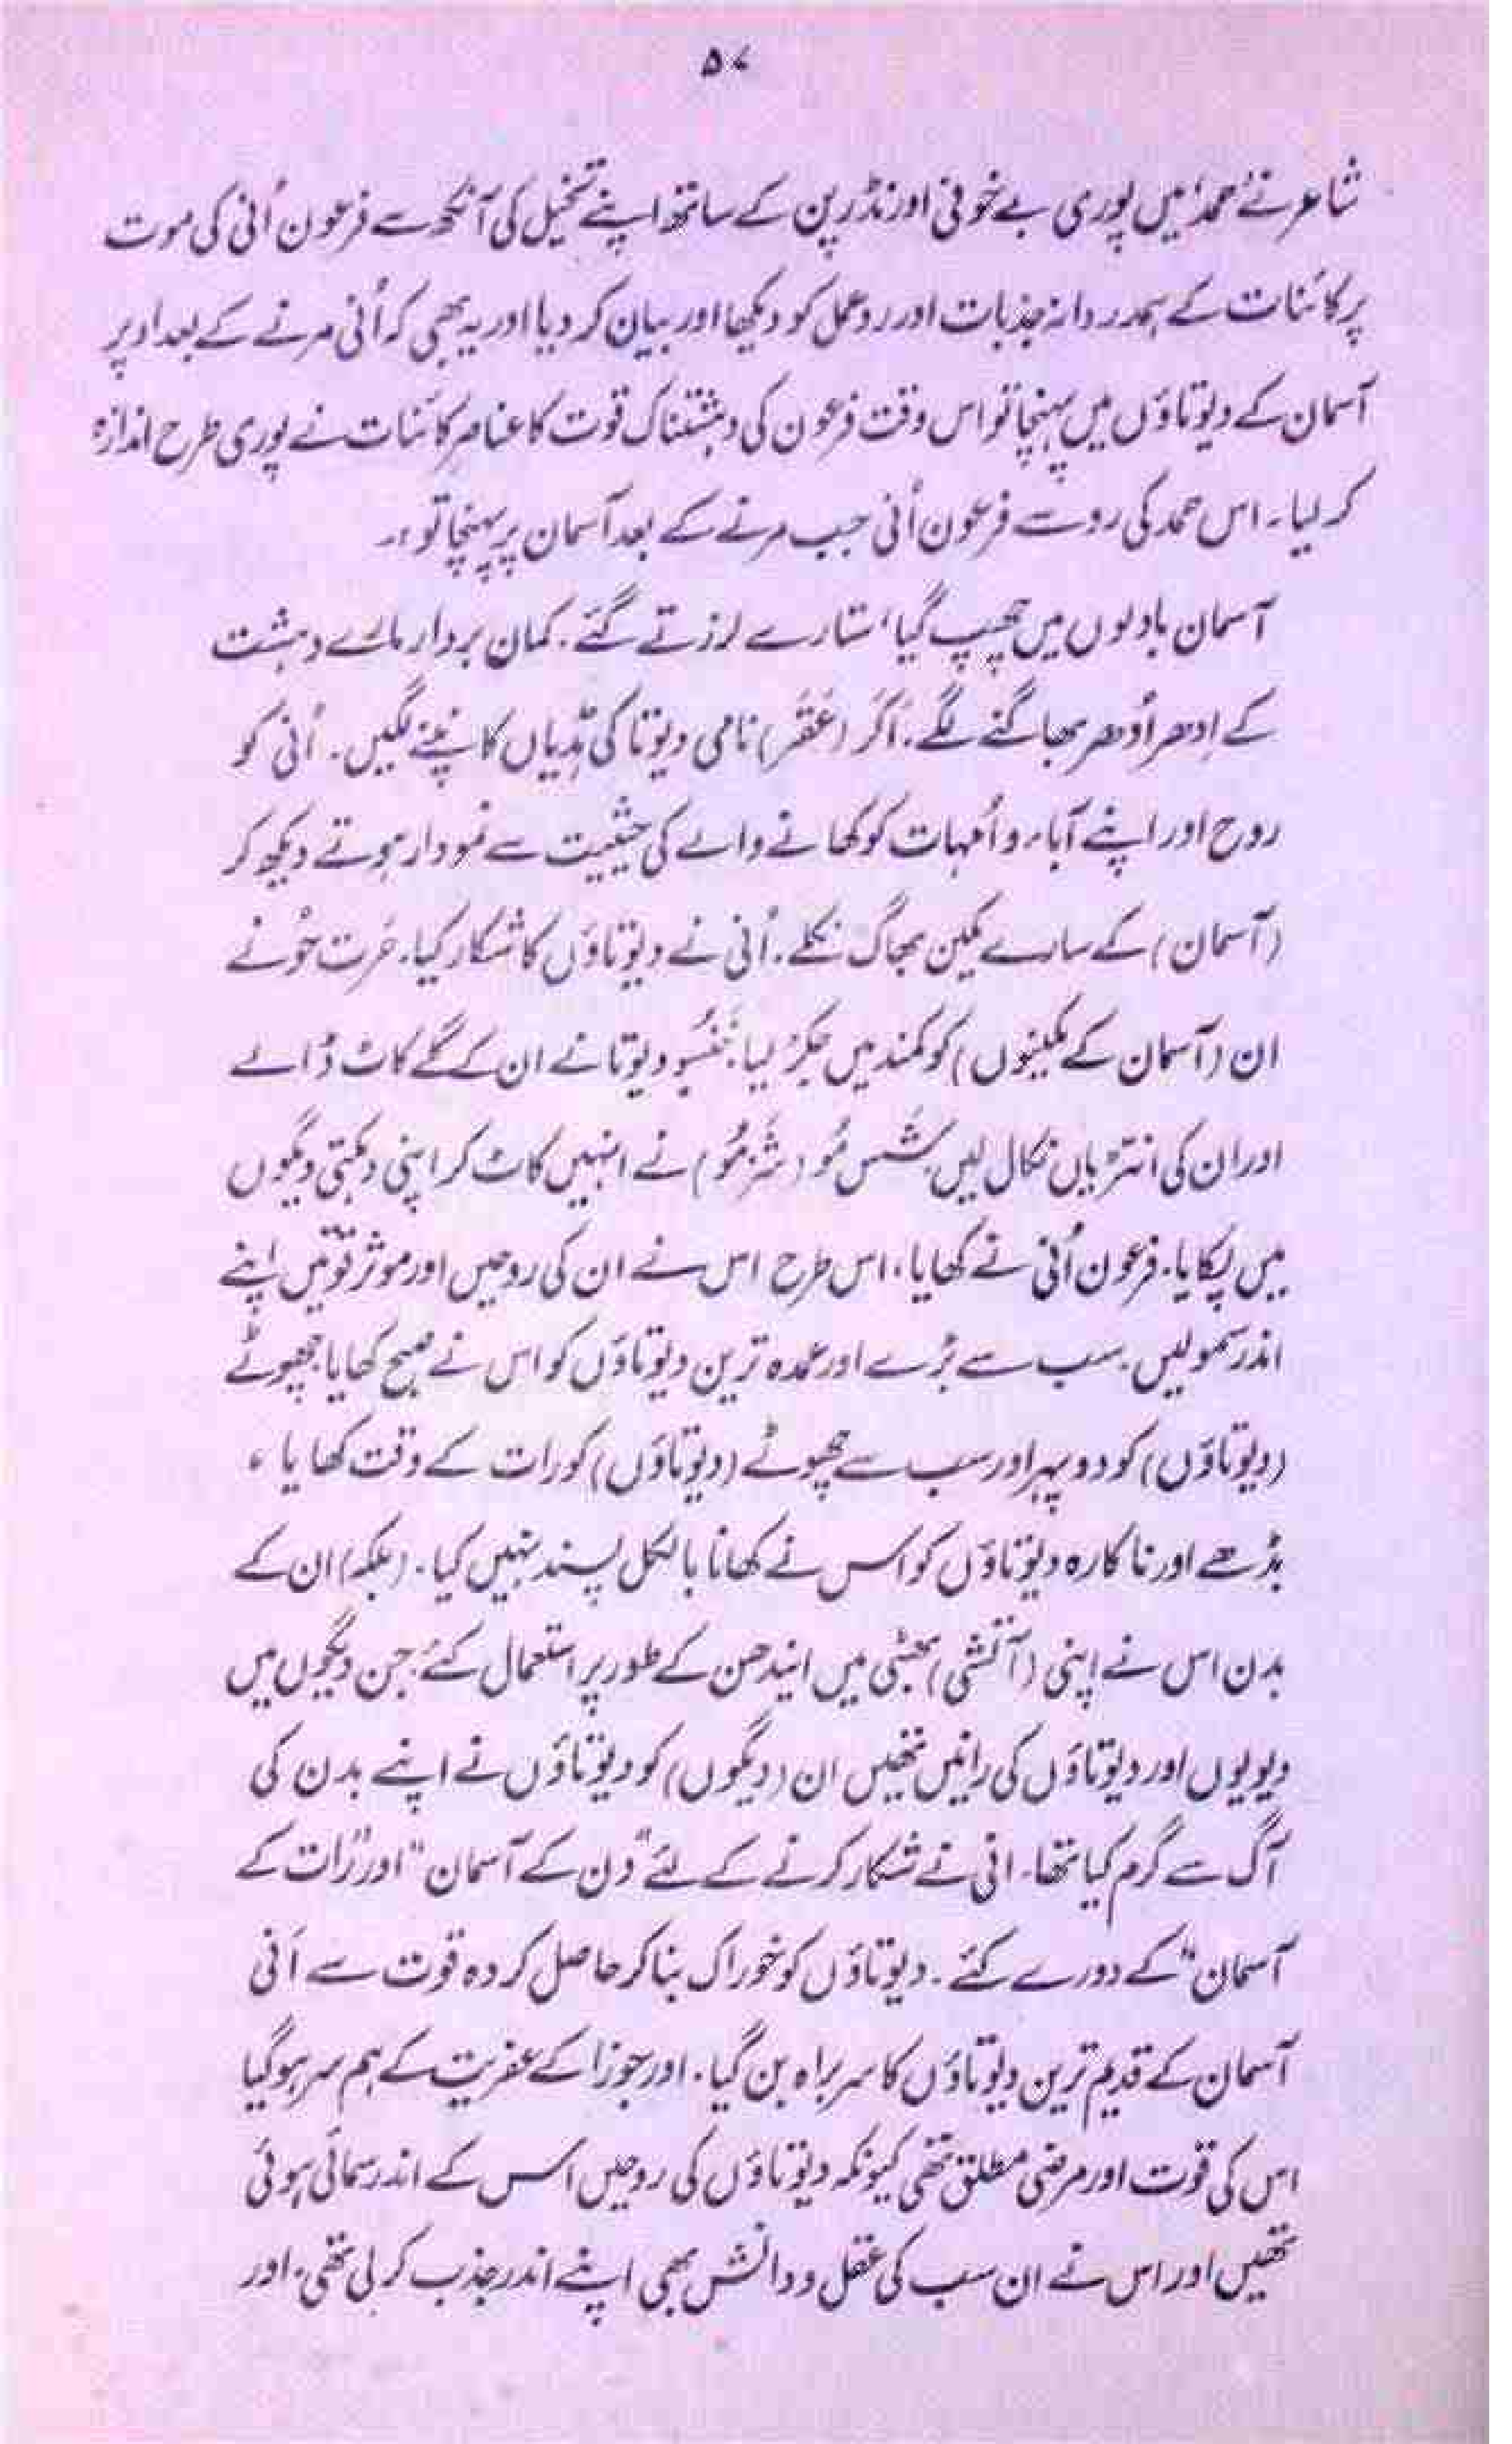 ۵۷
شاعر نے ’حمد‘ میں پوری بے خوفی اور نڈر پن کے ساتھ اپنے تخیل کی آنکھ سے فرعون اُنی کی موت
پر کائنات کے ہمدردانہ جذبات اور ردِ عمل کو دیکھا اور بیان کر دیا اور یہ بھی کہ اُنی مرنے کے بعد اوپر
آسمان کے دیوتاؤں میں پہنچا تو اس وقت فرعون کی دہشتناک قوت کا عناصرِ کائنات نے پوری طرح اندازہ
کر لیا۔ اس حمد کی رو سے فرعون اُنی جب مرنے کے بعد آسمان پر پہنچا تو :۔
آسمان بادلوں میں چھپ گیا، ستارے لرزتے گئے۔ کمان بردار مارے دہشت
کے اِدھر اُدھر بھاگنے لگے۔ اَکَر (عَقَر) نامی دیوتا کی ہڈیاں کانپنے لگیں۔ اُنی کو
روح اور اپنے آباء و اُمہات کو کھانے والے کی حیثیت سے نمودار ہوتے دیکھ کر
(آسمان) کے سارے مکین بھاگ نکلے۔ اُنی نے دیوتاؤں کا شکار کیا۔ حَرت حُو نے
ان (آسمان کے مکینوں) کو کمند میں جکڑ لیا۔ خَنسُو دیوتا نے ان کے گلے کاٹ ڈالے
اور ان کی انتڑیاں نکال لیں۔ شَسمُو (شَزمُو) نے انہیں کاٹ کر اپنی دہکتی دیگوں
میں پکایا۔ فرعون اُنی نے کھایا، اس طرح اس نے ان کی روحیں اور موثر قوتیں اپنے
اندر سمو لیں۔ سب سے بڑے اور عمدہ ترین دیوتاؤں کو اس نے صبح کھایا، چھوٹے
(دیوتاؤں) کو دوپہر اور سب سے چھوٹے (دیوتاؤں) کو رات کے وقت کھایا ،
بڈھے اور ناکارہ دیوتاؤں کو اس نے کھانا بالکل پسند نہیں کیا۔ (بلکہ) ان کے
بدن اس نے اپنی (آتشی) بھٹی میں ایندھن کے طور پر استعمال کئے۔ جن دیگوں میں
دیویوں اور دیوتاؤں کی رانیں تھیں ان (دیگوں) کو دیوتاؤں نے اپنے بدن کی
آگ سے گرم کیا تھا۔ انی نے شکار کرنے کے لئے ”دن کے آسمان“ اور ”رات کے
آسمان“ کے دورے کئے۔ دیوتاؤں کو خوراک بنا کر حاصل کردہ قوت سے اُنی
آسمان کے قدیم ترین دیوتاؤں کا سربراہ بن گیا۔ اور جوزا کے عفریت کے ہم سر ہو گیا
اس کی قوت اور مرضی مطلق تھی کیونکہ دیوتاؤں کی روحیں اس کے اندر سمائی ہوئی
تھیں اور اس نے ان سب کی عقل و دانش بھی اپنے اندر جذب کر لی تھی۔ اور